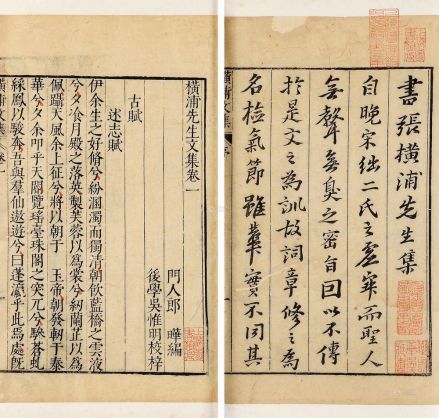 書張橫浦先生集
自晚宋絀二氏之虛寂而聖人
無聲無臭之密旨回以不傳
於是文之為訓故詞章修之為
名檢氣節雖華實不同其
橫浦文集
橫浦先生文集卷一
門人郎曄編
後學吳惟明校梓
古賦
述志賦
伊余生之好脩兮紛溷濁而獨清朝飲藍橋之雲液
兮夕飡月殿之落英製芙蓉以為裳兮紉蘭茝以為
佩躡天風余上征兮將以朝于玉帝朝發軔于秦
華兮夕余叩乎天閽覽瑤臺珠閣之突兀兮驂蒼虬
綵鳳以駿奔吾與羣仙遨遊兮曰蓬瀛乎此焉處既
橫浦文集卷一